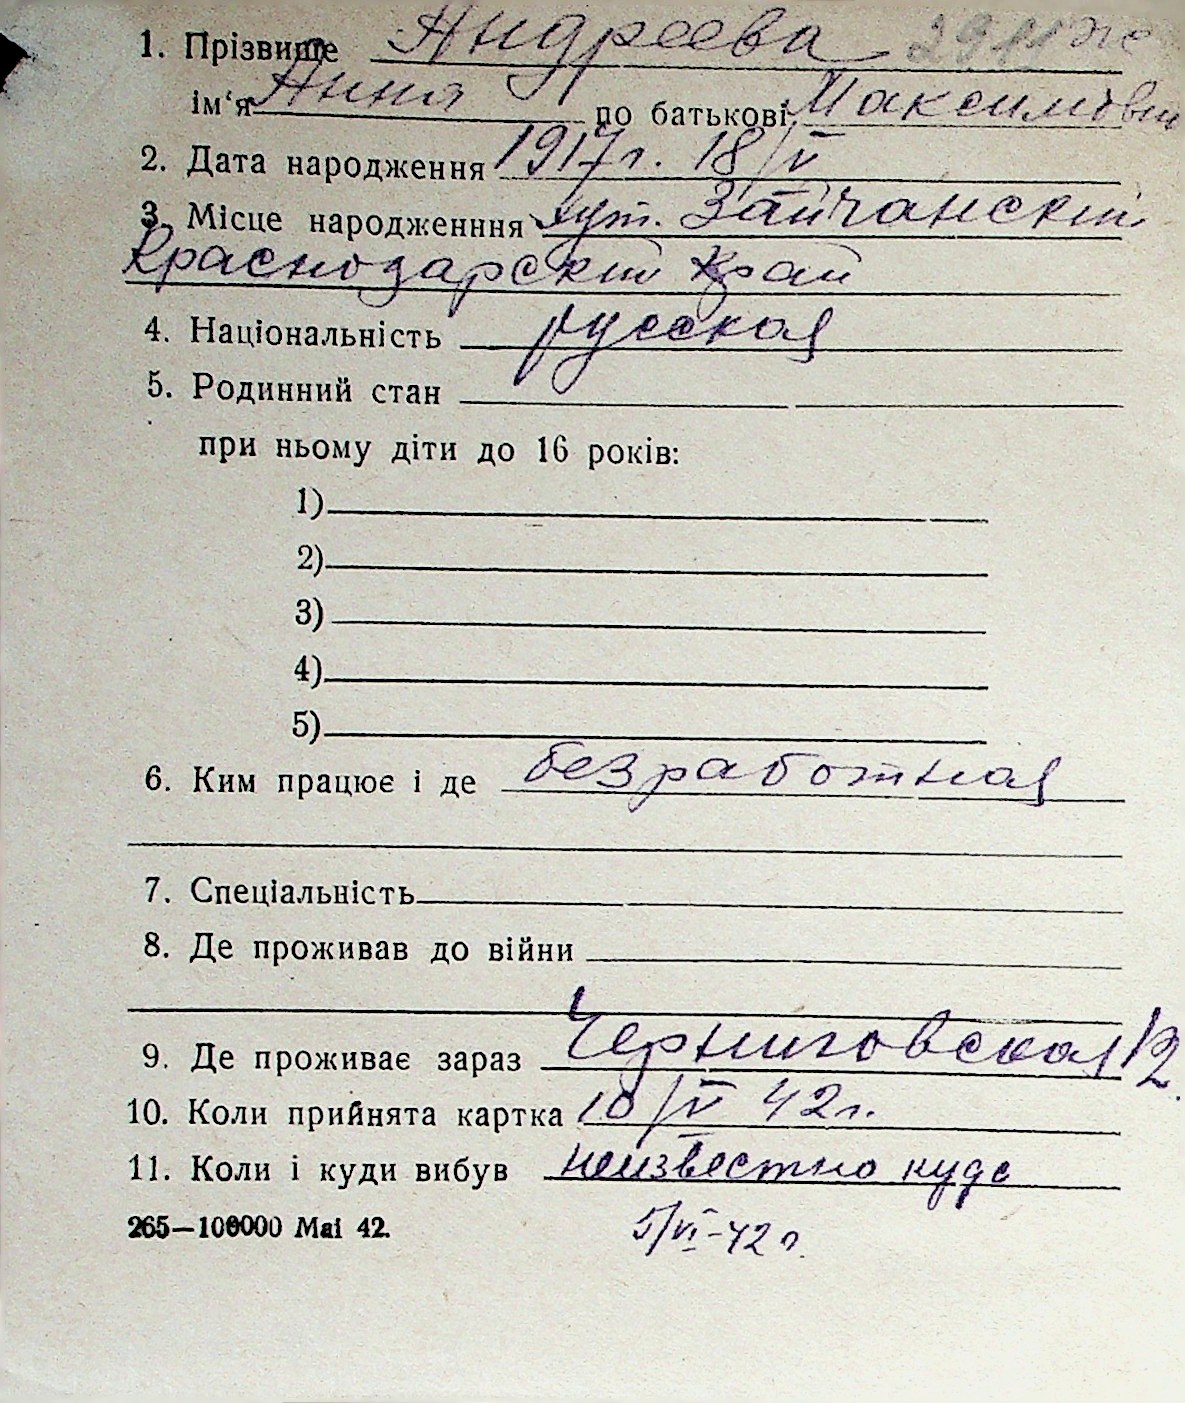 1. Прізвище Андреева
ім‘я Анна по батькові Максимовн
2. Дата народження 1917г. 18/V
3. Місце народженння хут. Зайчанский
Краснодарский край
4. Національність русская
5. Родинний стан
при ньому діти до 16 років:
1)
2)
3)
4)
5)
6. Ким працює і де безработная
7. Спеціальність
8. Де проживав до війни
9. Де проживає зараз Черниговская 12
10. Коли прийнята картка 10/V 42г.
11. Коли і куди вибув неизвестно куда
265—100000 Mai 42. 5/VI-42г.